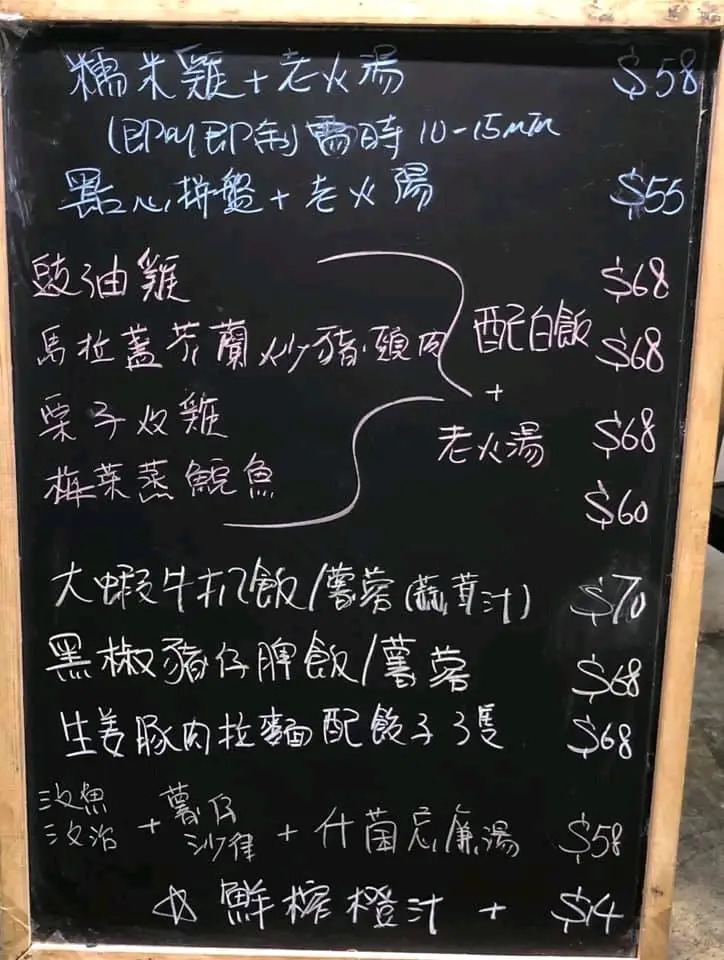 糯米雞+老火湯 $58
(即叫即制)需時10-15min
點心拼盤+老火湯 $55
豉油雞 $68
馬拉盞芥蘭炒豬頭肉 配白飯 $68
栗子炆雞 + 老火湯 $68
梅菜蒸鯇魚 $60
大蝦牛扒飯/薯蓉(蒜茸汁) $70
黑椒豬仔脾飯/薯蓉 $68
生姜豚肉拉麵配餃子3隻 $68
三文魚三文治+薯仔沙律+什菌忌廉湯 $58
☆鮮榨橙汁 + $14